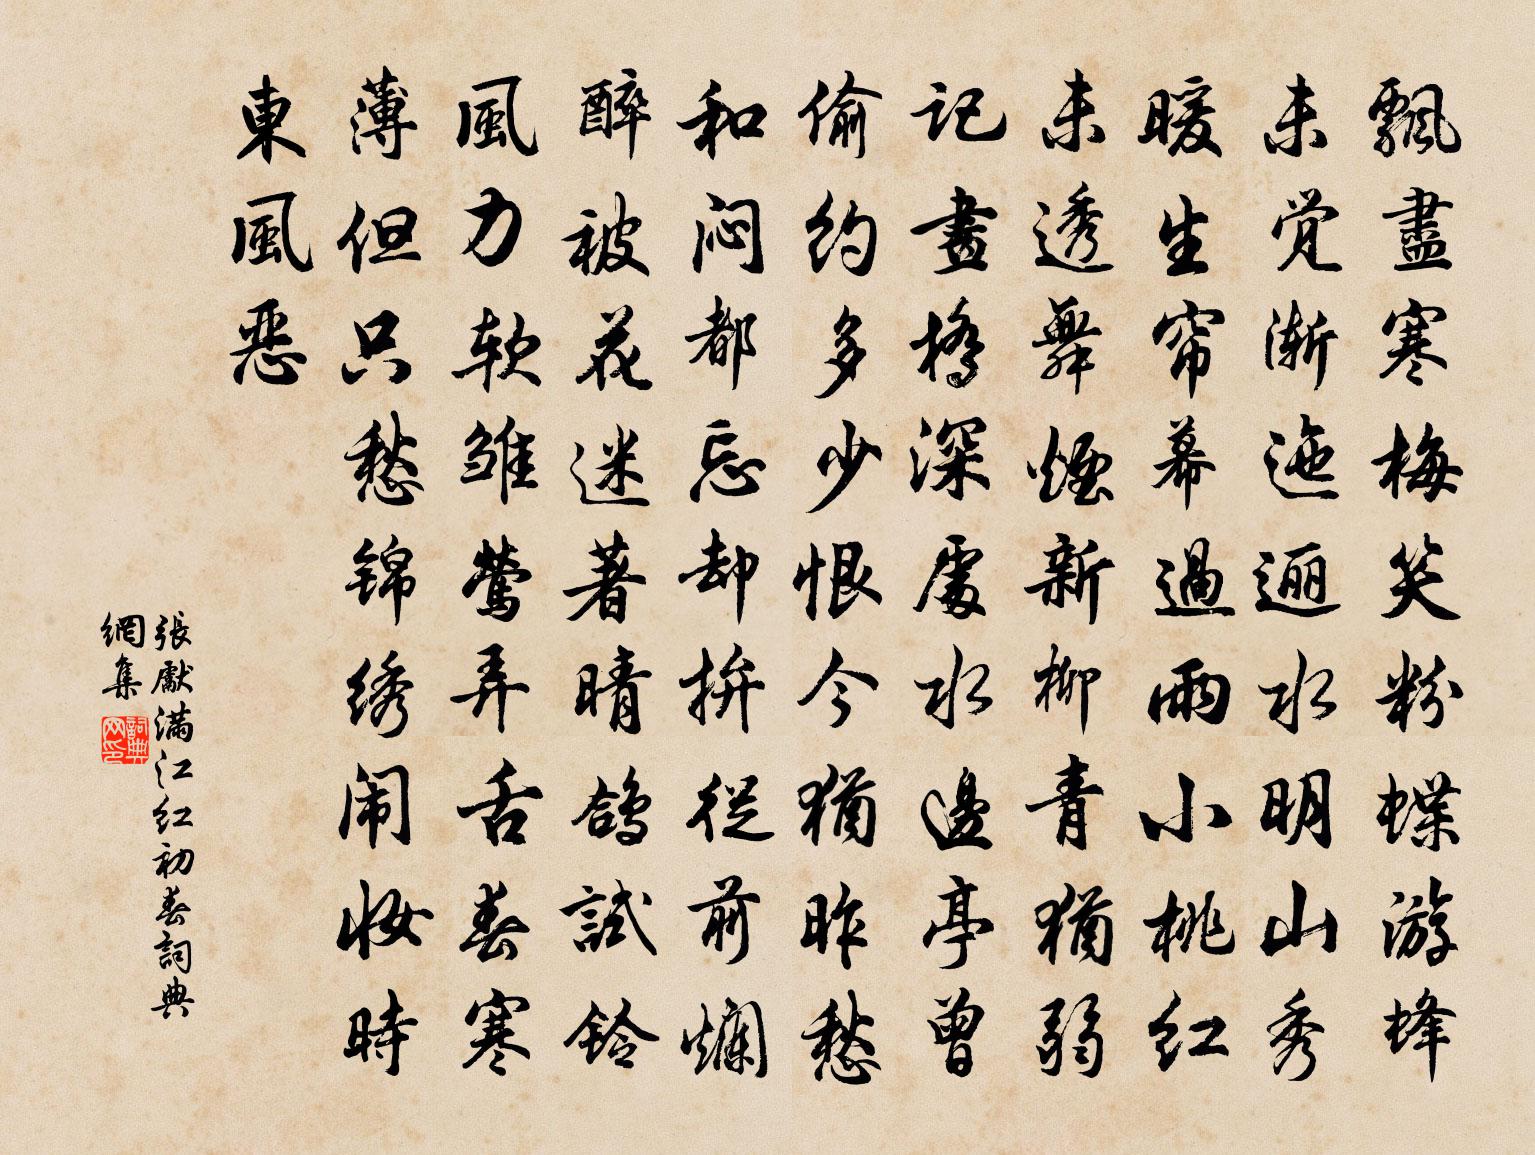 飄盡寒梅笑粉蝶游蜂
未觉渐迤逦水明山秀
暖生帘幕過雨小桃红
未透舞煙新柳青猶弱
記畫橋深處水邊亭曾
偷约多少恨今猶昨愁
和闷都忘却拚從前爛
醉被花迷著晴鸽試铃
風力软雏鶯弄舌春寒
薄但只愁锦绣闹妆時
東風恶
張獻满江红初春詞典
網集
詞典网印